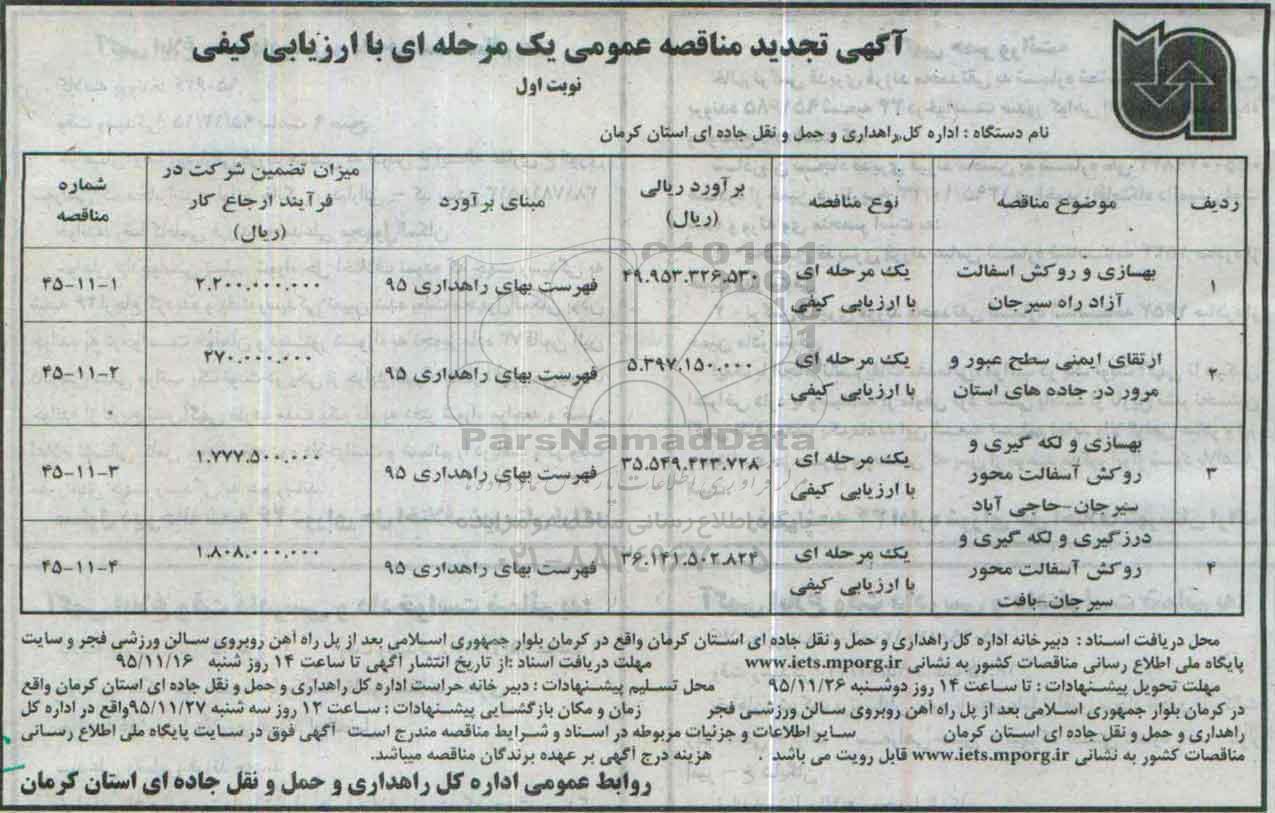 آگهی تجدید مناقصه عمومی یک مرحله ای با ارزیابی کیفی
نوبت اول
نام دستگاه : اداره کل راهداری و حمل و نقل جاده ای استان کرمان
ردیف موضوع مناقصه نوع مناقصه برآورد ریالی (ریال) مبنای برآورد میزان تضمین شرکت در فرآیند ارجاع کار (ریال) شماره مناقصه
۱ بهسازی و روکش اسفالت آزاد راه سیرجان یک مرحله ای با ارزیابی کیفی ۴۹.۹۵۳.۳۲۶.۵۳۰ فهرست بهای راهداری ۹۵ ۲.۲۰۰.۰۰۰.۰۰۰ ۴۵-۱۱-۱
۲ ارتقای ایمنی سطح عبور و مرور در جاده های استان یک مرحله ای با ارزیابی کیفی ۵.۳۹۷.۱۵۰.۰۰۰ فهرست بهای راهداری ۹۵ ۲۷۰.۰۰۰.۰۰۰ ۴۵-۱۱-۲
۳ بهسازی و لکه گیری و روکش آسفالت محور سیرجان-حاجی آباد یک مرحله ای با ارزیابی کیفی ۳۵.۵۴۹.۴۲۳.۷۲۸ فهرست بهای راهداری ۹۵ ۱.۷۷۷.۵۰۰.۰۰۰ ۴۵-۱۱-۳
۴ درزگیری و لکه گیری و روکش آسفالت محور سیرجان-بافت یک مرحله ای با ارزیابی کیفی ۳۶.۱۴۱.۵۰۲.۸۲۴ فهرست بهای راهداری ۹۵ ۱.۸۰۸.۰۰۰.۰۰۰ ۴۵-۱۱-۴
محل دریافت اسناد : دبیرخانه اداره کل راهداری و حمل و نقل جاده ای استان کرمان واقع در کرمان بلوار جمهوری اسلامی بعد از پل راه آهن روبروی سالن ورزشی فجر و سایت
پایگاه ملی اطلاع رسانی مناقصات کشور به نشانی www.iets.mporg.ir مهلت دریافت اسناد :از تاریخ انتشار آگهی تا ساعت ۱۴ روز شنبه ۹۵/۱۱/۱۶
مهلت تحویل پیشنهادات : تا ساعت ۱۴ روز دوشنبه ۹۵/۱۱/۲۶ محل تسلیم پیشنهادات : دبیر خانه حراست اداره کل راهداری و حمل و نقل جاده ای استان کرمان واقع
در کرمان بلوار جمهوری اسلامی بعد از پل راه آهن روبروی سالن ورزشی فجر زمان و مکان بازگشایی پیشنهادات : ساعت ۱۲ روز سه شنبه ۹۵/۱۱/۲۷واقع در اداره کل
راهداری و حمل و نقل جاده ای استان کرمان سایر اطلاعات و جزئیات مربوطه در اسناد و شرایط مناقصه مندرج است آگهی فوق در سایت پایگاه ملی اطلاع رسانی
مناقصات کشور به نشانی www.iets.mporg.ir قابل رویت می باشد . هزینه درج آگهی بر عهده برندگان مناقصه میباشد.
روابط عمومی اداره کل راهداری و حمل و نقل جاده ای استان کرمان
ParsNamadData